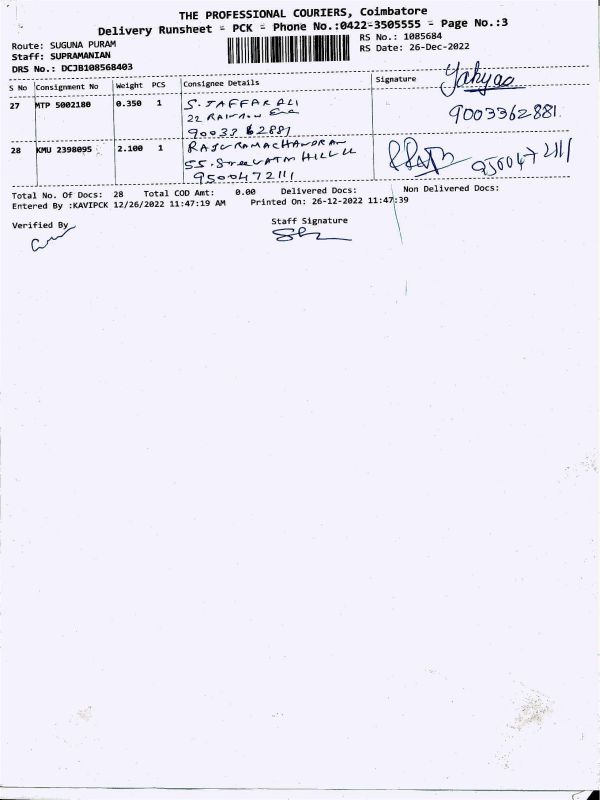 THE PROFESSIONAL COURIERS, Coimbatore
Delivery Runsheet = PCK = Phone No.:0422-3505555 = Page No.:3
Route: SUGUNA PURAM
RS No.: 1085684
Staff: SUPRAMANIAN
RS Date: 26-Dec-2022
DRS No.: DCJB108568403
S No Consignment No Weight PCS Consignee Details Signature
27 MTP 5002180 0.350 1 S. JAFFAR ALI Yahyaa
22 9003362881
9003362881
28 KMU 2398095 2.100 1 RAJU RAMACHANDRAN
55. HILL 9500472111
9500472111
Total No. Of Docs: 28 Total COD Amt: 0.00 Delivered Docs: Non Delivered Docs:
Entered By :KAVIPCK 12/26/2022 11:47:19 AM Printed On: 26-12-2022 11:47:39
Verified By Staff Signature